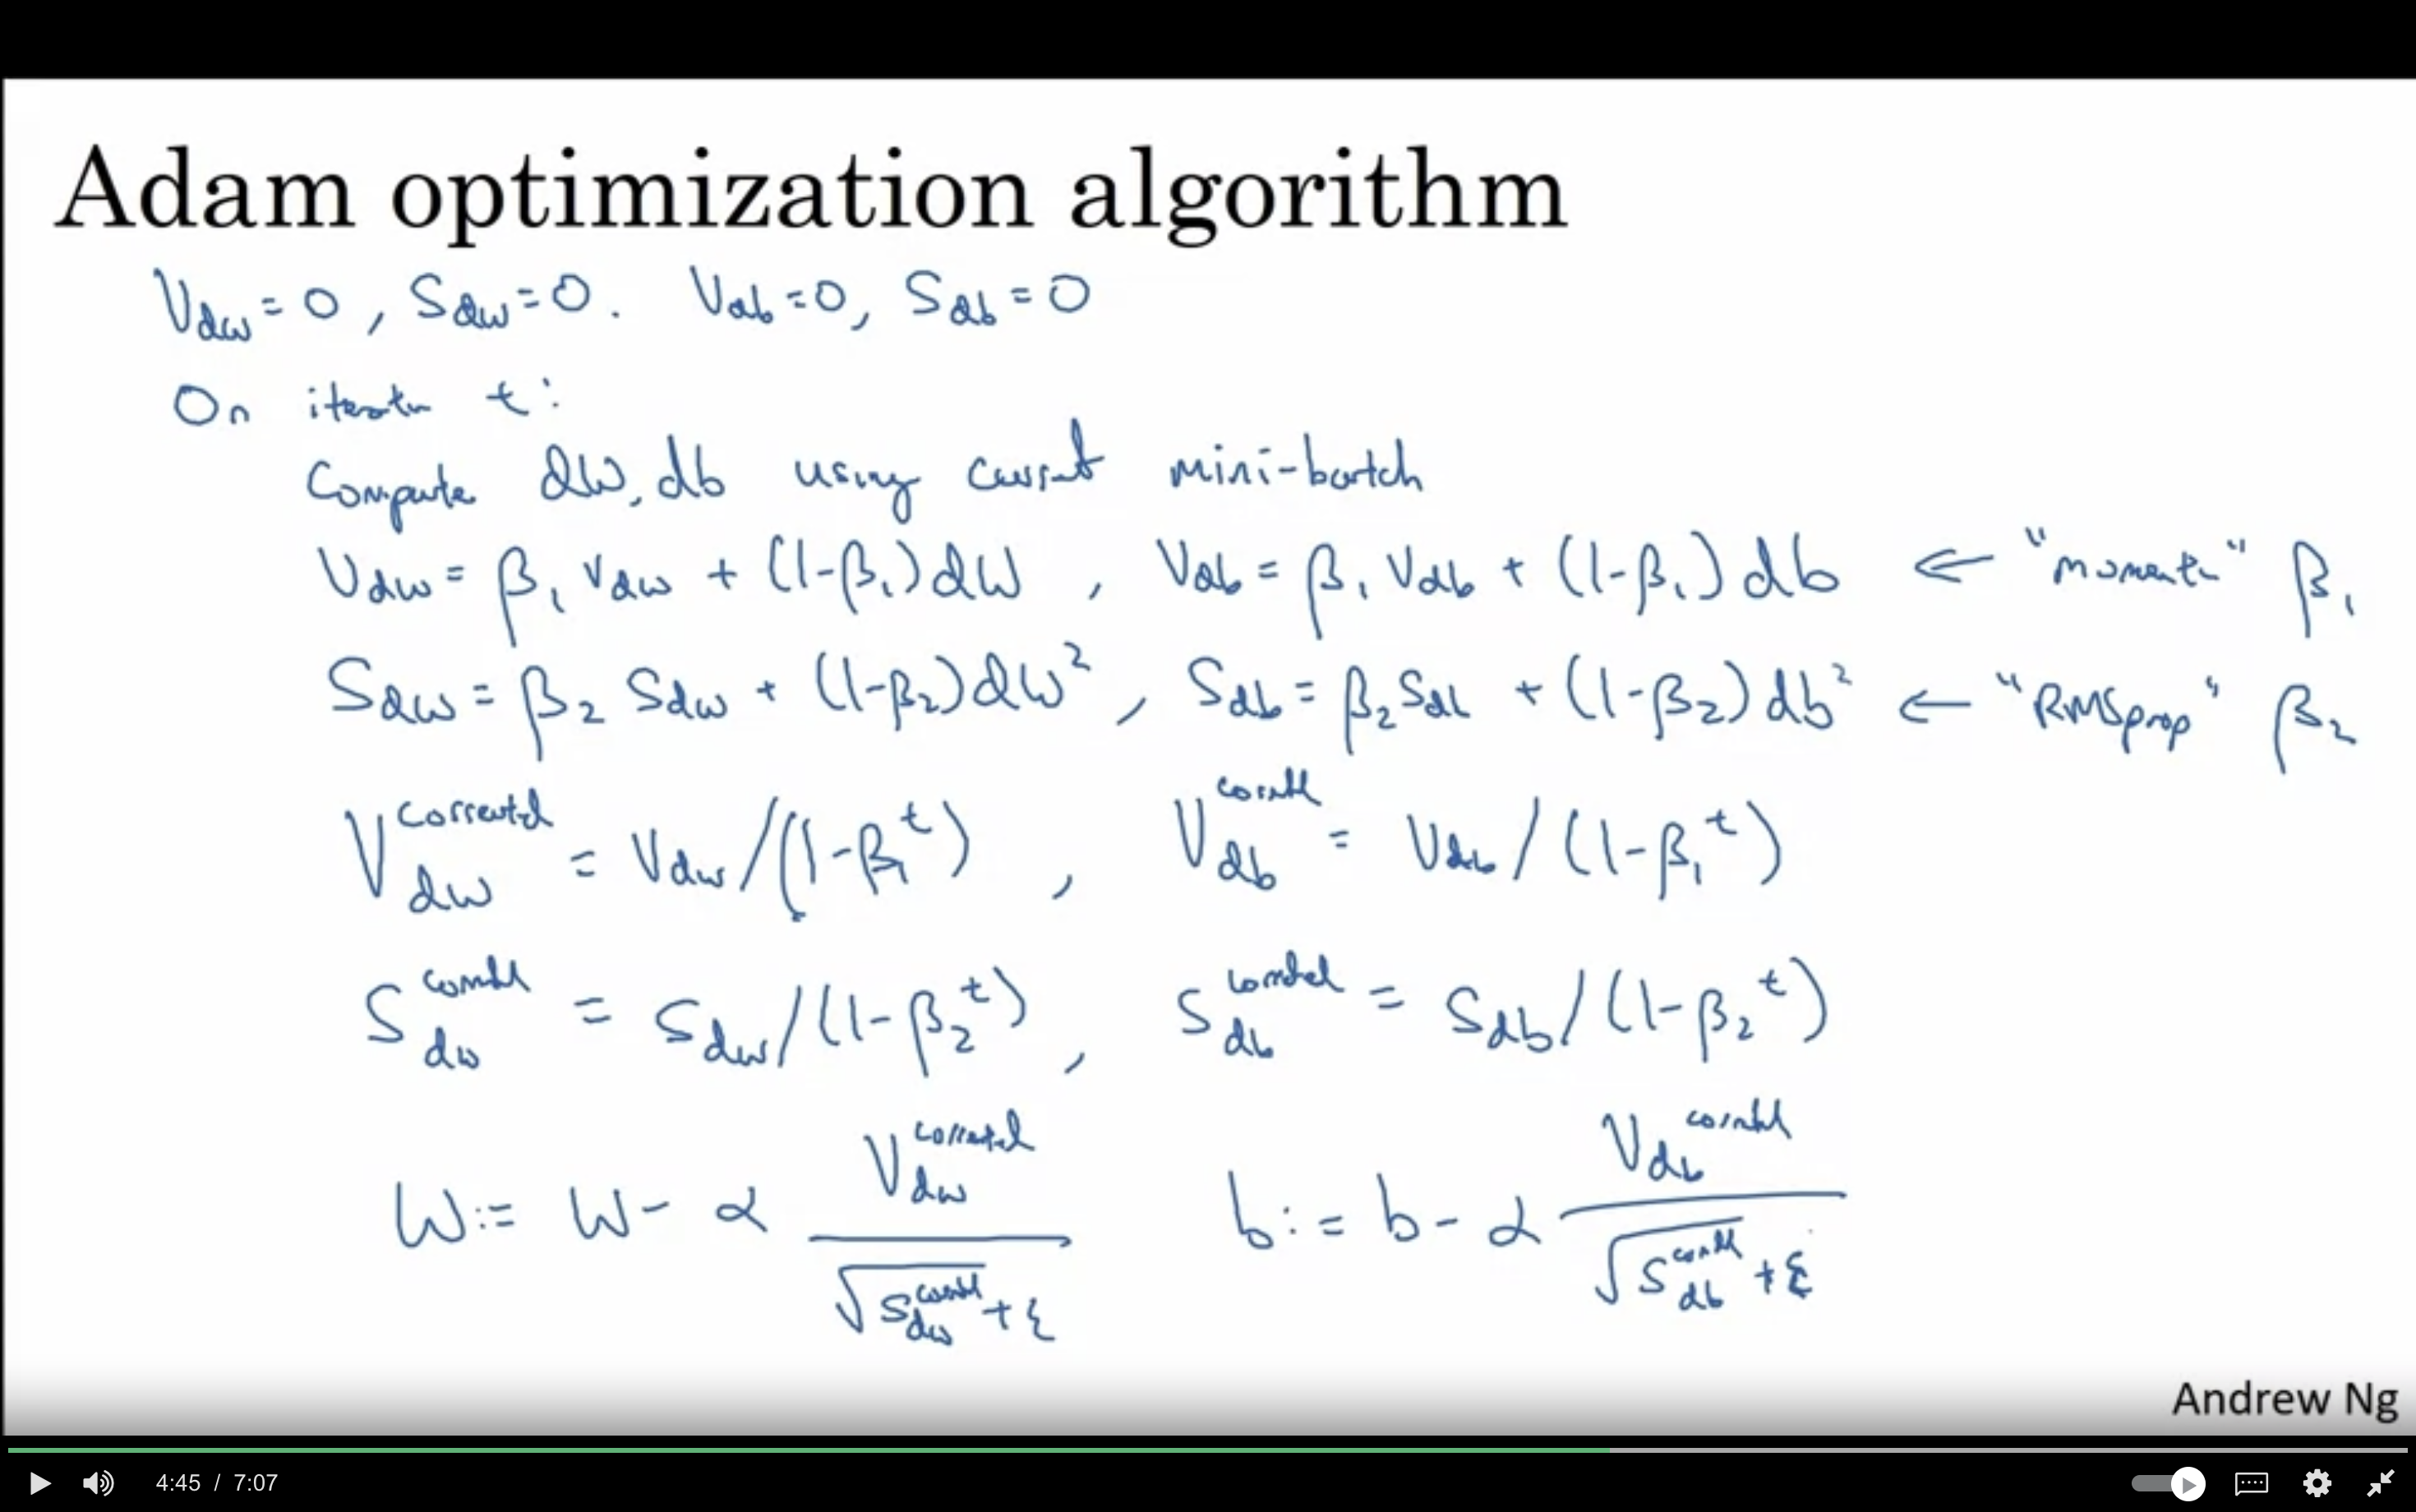 Adam optimization algorithm
V_dw = 0, S_dw = 0. V_db = 0, S_db = 0
On iteratn t:
Compute dW, db using current mini-batch
V_dw = β₁ V_dw + (1-β₁) dW, V_db = β₁ V_db + (1-β₁) db ← "momentum" β₁
S_dw = β₂ S_dw + (1-β₂) dW², S_db = β₂ S_db + (1-β₂) db² ← "RMSprop" β₂
V_dw^corrected = V_dw/(1-β₁^t), V_db^corrected = V_db/(1-β₁^t)
S_dw^corrected = S_dw/(1-β₂^t), S_db^corrected = S_db/(1-β₂^t)
W := W - α V_dw^corrected / (√S_dw^corrected + ε) b := b - α V_db^corrected / (√S_db^corrected + ε)
Andrew Ng
4:45 / 7:07